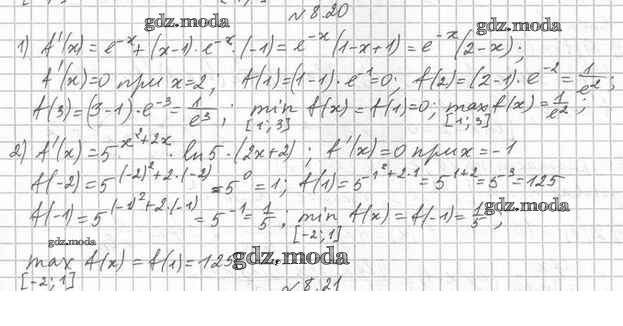 № 8.20
gdz.moda
gdz.moda
1) f'(x) = e^{-x} + (x-1)·e^{-x}·(-1) = e^{-x}(1-x+1) = e^{-x}(2-x);
f'(x)=0 при x=2; f(1)=(1-1)·e^{-1}=0; f(2)=(2-1)·e^{-2}=1/e^2;
f(3)=(3-1)·e^{-3}=1/e^3; min f(x)=f(1)=0; max f(x)=1/e^2;
[1;3] [1;3]
gdz.moda
gdz.moda
2) f'(x)=5^{x^2+2x}·ln5·(2x+2); f'(x)=0 при x=-1
f(-2)=5^{(-2)^2+2·(-2)}=5^0=1; f(1)=5^{1^2+2·1}=5^{1+2}=5^3=125
f(-1)=5^{(-1)^2+2·(-1)}=5^{-1}=1/5; min f(x)=f(-1)=1/5;
[-2;1]
gdz.moda
gdz.moda
max f(x)=f(1)=125
[-2;1]
gdz.moda
№ 8.21